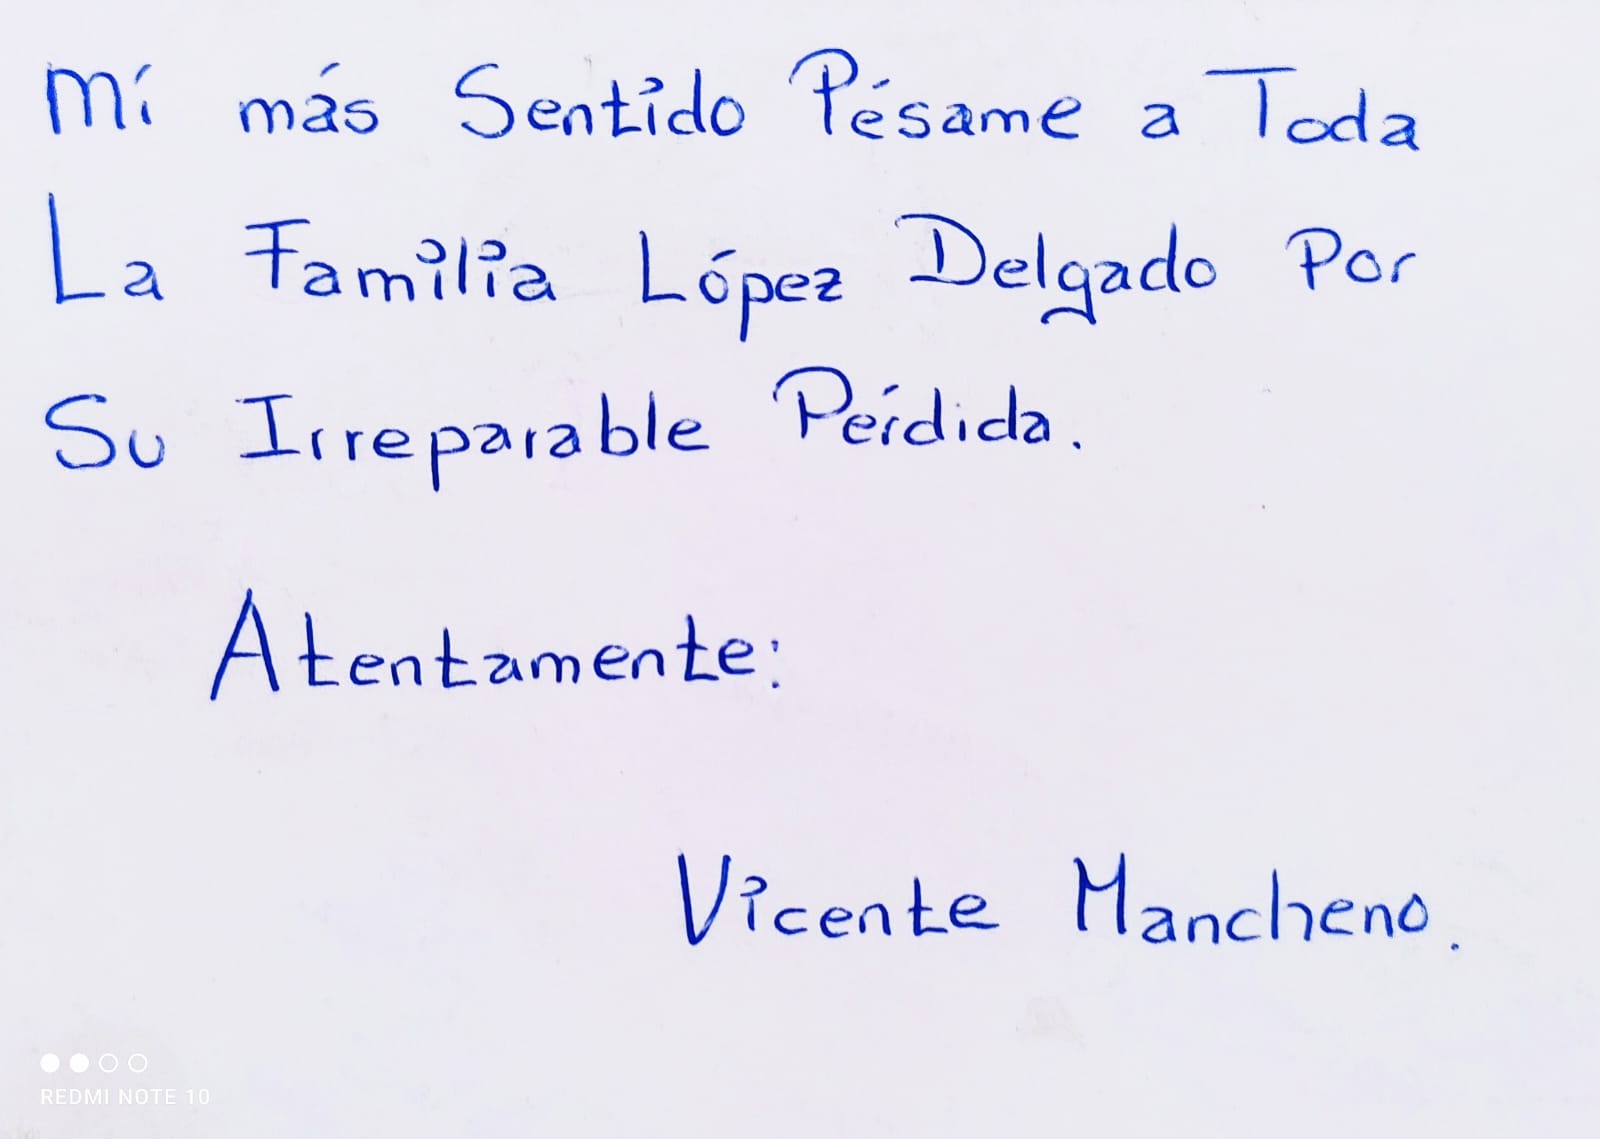 Mí más Sentido Pésame a Toda
La Familia López Delgado Por
Su Irreparable Pérdida.
Atentamente:
Vicente Mancheno.
REDMI NOTE 10